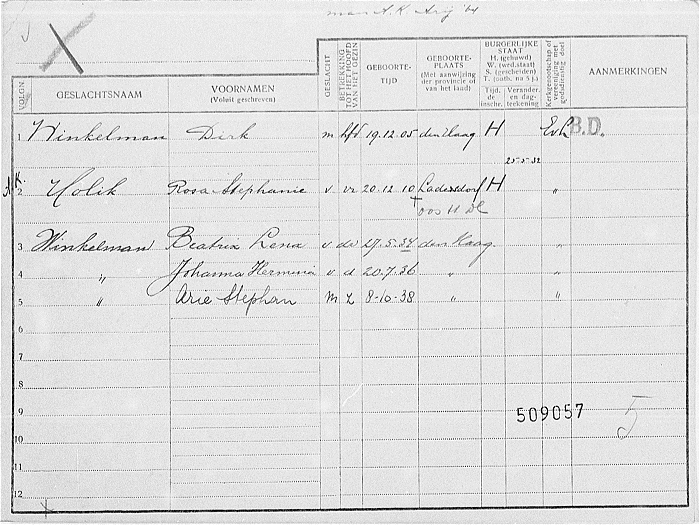 man A.K. Arij '64
VOLGN.
GESLACHTSNAAM
VOORNAMEN
(Voluit geschreven)
GESLACHT
BETREKKING
TOT HET HOOFD
VAN HET GEZIN
GEBOORTE-
TIJD
GEBOORTE-
PLAATS
(Met aanwijzing
der provincie of
van het land)
BURGERLIJKE
STAAT
H. (gehuwd)
W. (wed.staat)
S. (gescheiden)
T. (onth. na 5 j.)
Tijd. de
insche.
Verander.
en dag-
teekening
Kerkgenootschap of
vereeniging met
godsdienstig doel
AANMERKINGEN
1 Winkelman Dirk m hfd 19.12.05 den Haag H Ev L B.D.
25-5-32
A.K.
2 Holik Rosa Stephanie v vr 20.12.10 Ladersdorf H "
† OOSH
3 Winkelman Beatrix Lena v de 27.5.34 den Haag "
4 " Johanna Hermina v d 20.7.36 " "
5 " Arie Stephan M Z 8-10-38 " "
6
7
8
9
509057 5
10
11
12